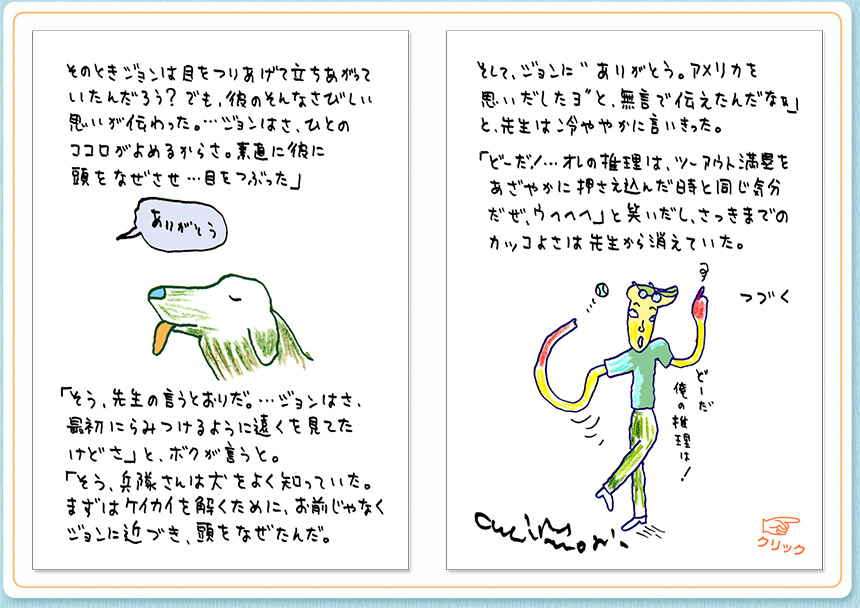 そのときジョンは目をつりあげて立ちあがって
いたんだろう？でも、彼のそんなさびしい
思いが伝わった。…ジョンはさ、ひとの
ココロがよめるからさ。素直に彼に
頭をなぜさせ…目をつぶった」
ありがとう
「そう、先生の言うとおりだ。…ジョンはさ、
最初にらみつけるように遠くを見てた
けどさ」と、ボクが言うと。
「そう、兵隊さんは犬をよく知っていた。
まずはケイカイを解くために、お前じゃなく
ジョンに近づき、頭をなぜたんだ。
そして、ジョンに〝ありがとう。アメリカを
思いだしたヨ〟と、無言で伝えたんだな」
と、先生は冷ややかに言いきった。
「どーだ！…オレの推理は、ツーアウト満塁を
あざやかに押さえ込んだ時と同じ気分
だぜ、ウヘヘヘ」と笑いだし、さっきまでの
カッコよさは先生から消えていた。
つづく
どーだ
俺の推理は！
クリック